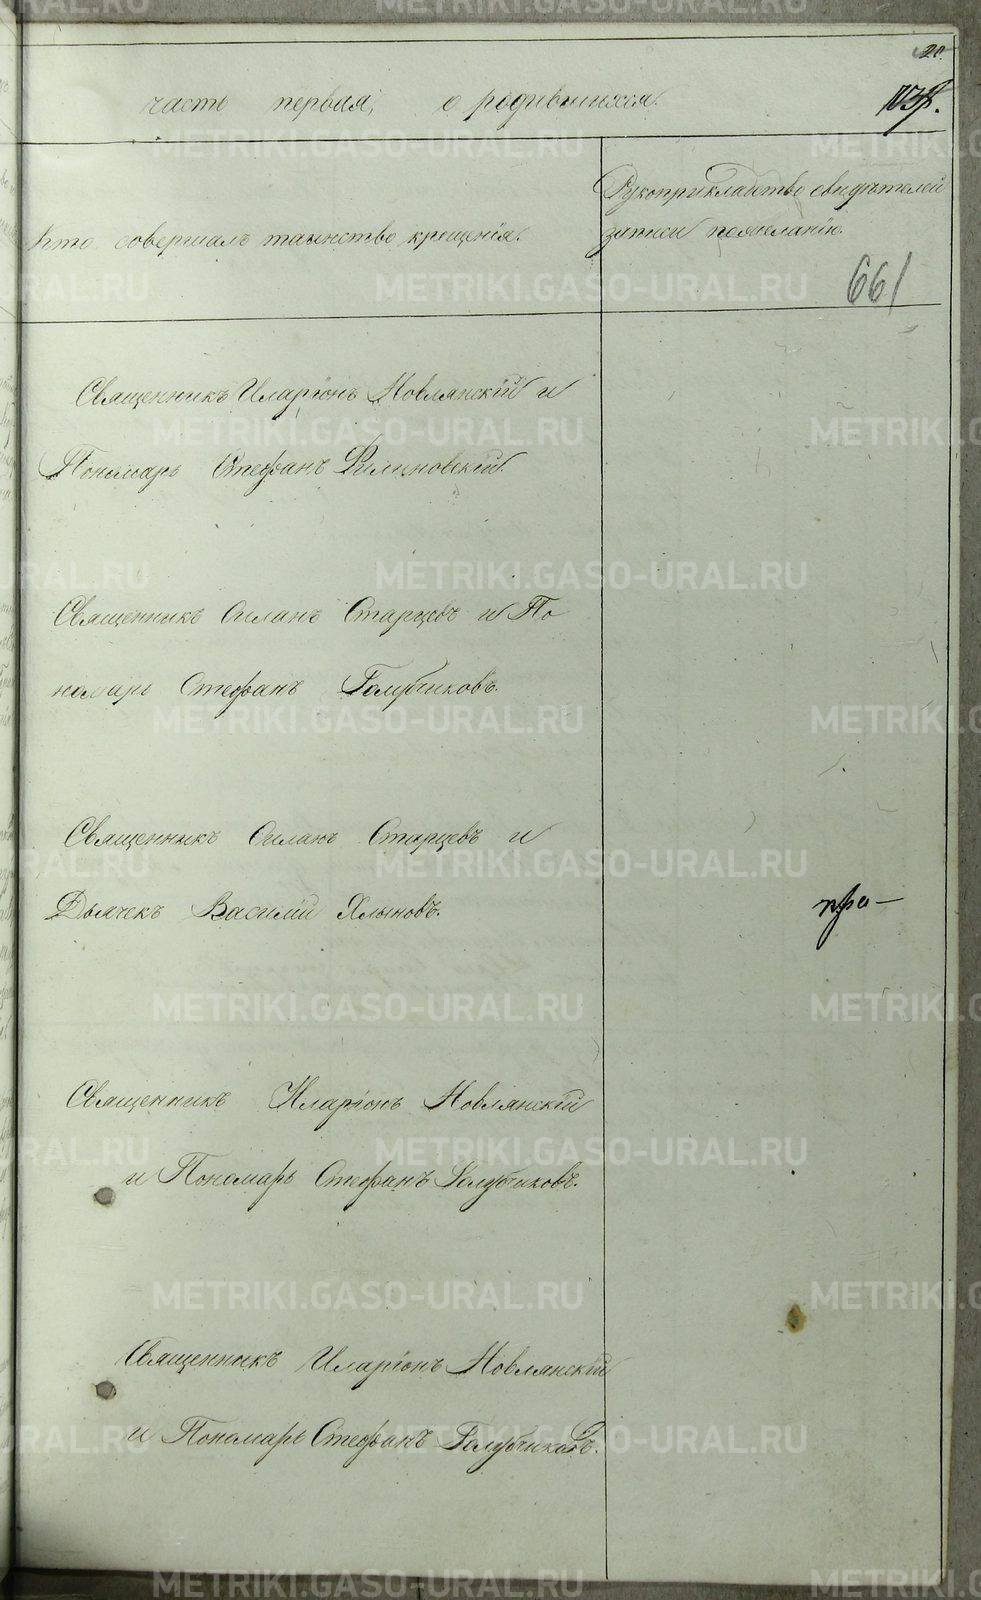 20
часть первая, о родившихся.
Кто совершалъ таинство крещенія.
Рукоприкладство свидѣтелей
записи по желанію.
661
Священникъ Иларіонъ Новлянскій и
Пономарь Стефанъ
Священникъ Силанъ Старцевъ и По
номарь Стефанъ Голубчиковъ.
Священникъ Силанъ Старцевъ и
Дьячекъ Василій Хлыновъ.
Священникъ Иларіонъ Новлянскій
и Пономарь Стефанъ Голубчиковъ.
Священникъ Иларіонъ Новлянскій
и Пономарь Стефанъ Голубчиковъ.
METRIKI.GASO-URAL.RU